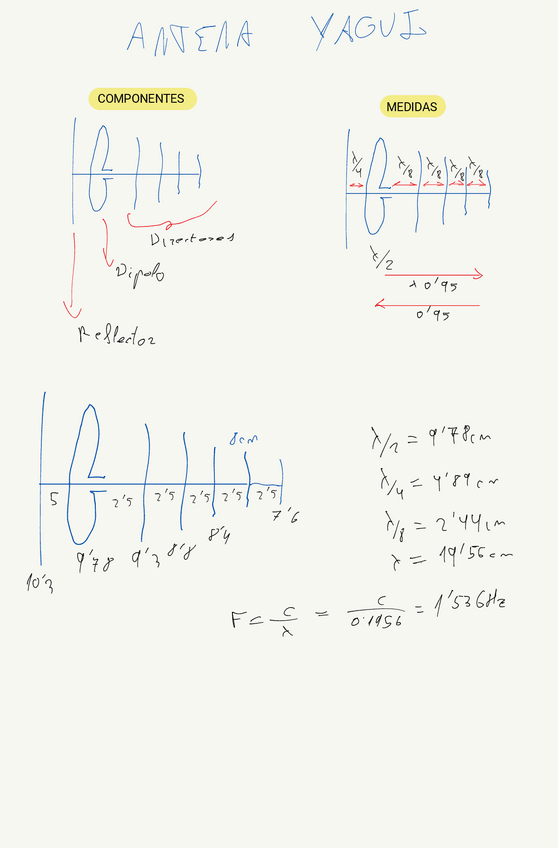 ANTENA YAGUI
COMPONENTES
Directores
Dipolo
Reflector
MEDIDAS
λ/4 λ/8 λ/8 λ/8 λ/8
λ/2
x 0'95
0'95
8cm
5 2'5 2'5 2'5 2'5 2'5
10'3 9'78 9'3 8'8 8'4 7'6
λ/2 = 9'78cm
λ/4 = 4'89cm
λ/8 = 2'44cm
λ = 19'56cm
F = c/λ = c/0.1956 = 1'53GHz